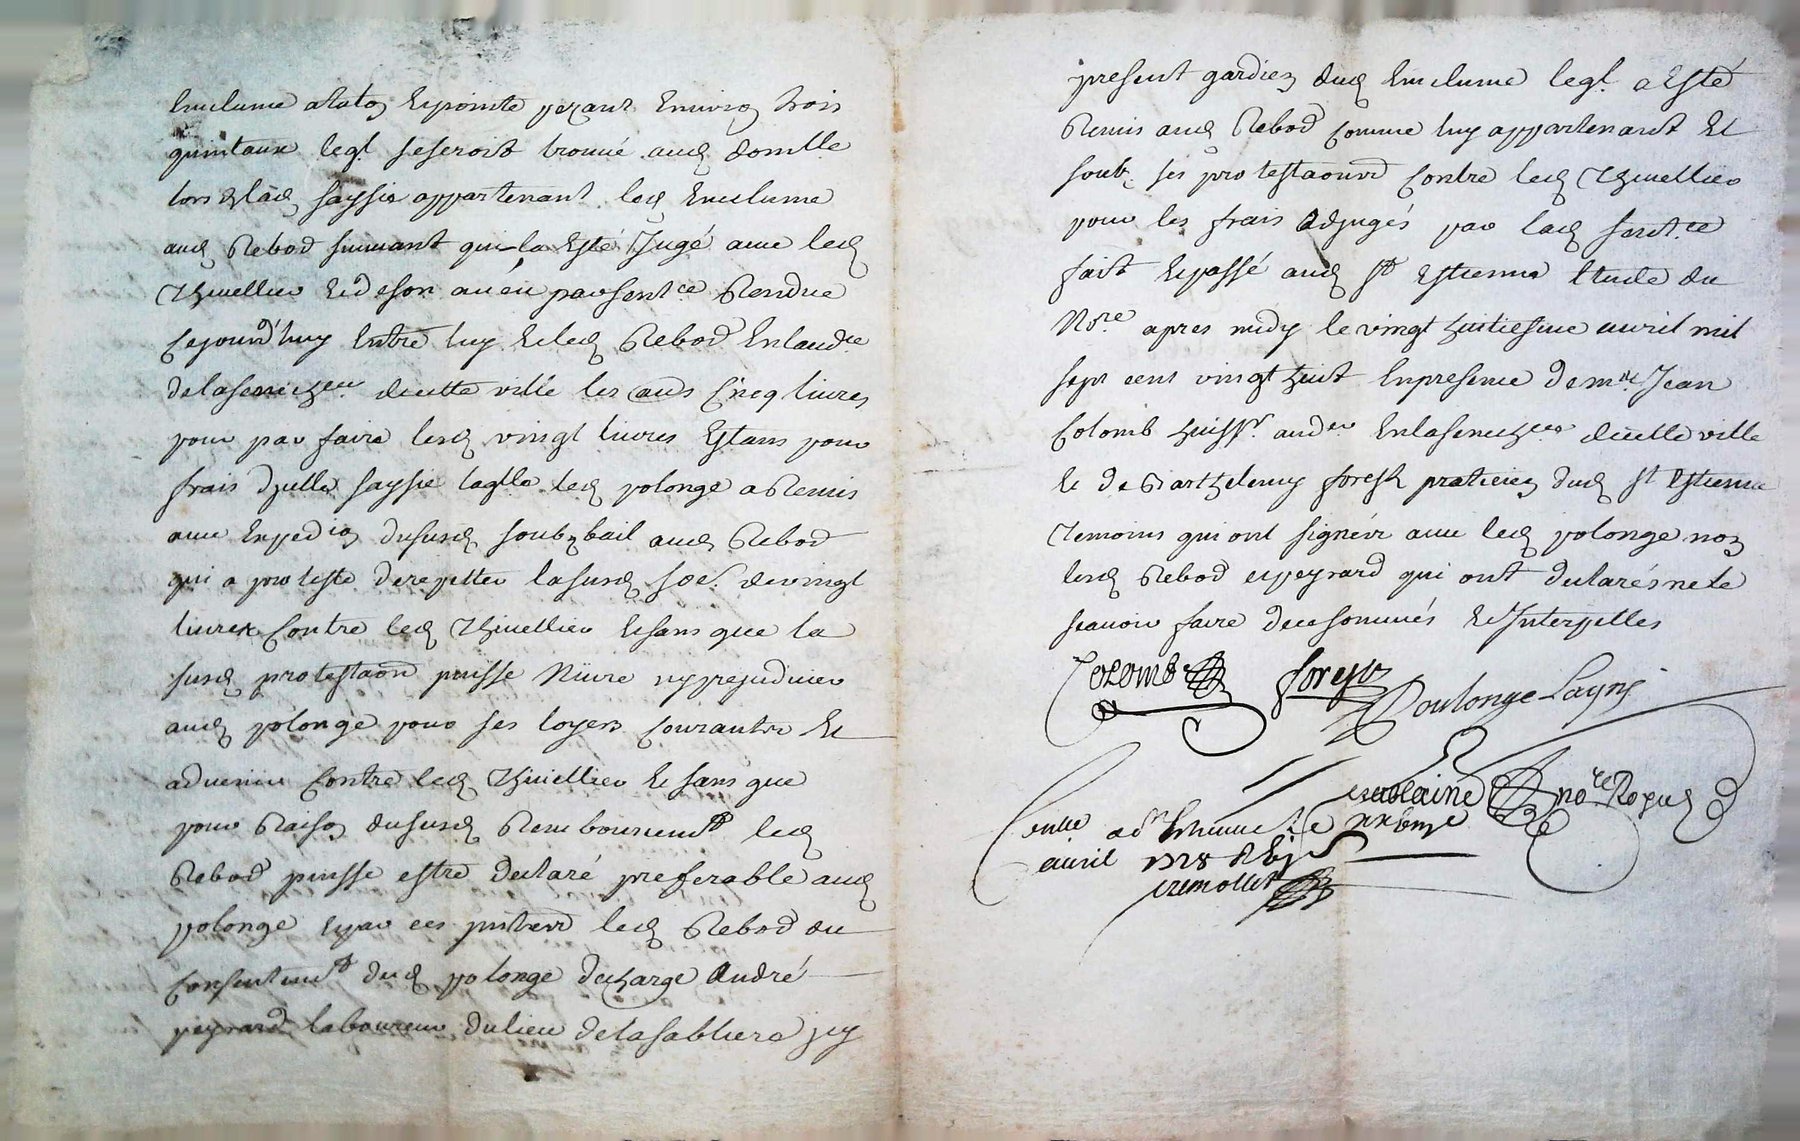 Enclume a talog et pointe pezant Environ trois
quintaux leql se seroit trouvé aud domlle
lors de lad saysie appartenant led Enclume
aud Rebod suivant qui la Esté Jugé avec led
Thivellier et de son aveu par sentce Rendue
Cejourd'huy Entre luy et led Rebod En laudce
de la senechée de cette ville les Cinq livres
pour par faire lesd vingt livres Estans pour
frais dicelle saysie laqlle led polonge a Remis
avec Expedion du susd soubz bail aud Rebod
qui a protesté de repetter la susd soe de vingt
livres Contre led Thivellier et sans que la
susd protestaon puisse Nüire ny prejudicier
aud polonge pour ses loyers Courants Et
advenir Contre led Thivellier et sans que
pour Raison du susd Remboursemt led
Rebod puisse estre declaré preferable aud
polonge et par ces led Rebod du
Consentemt dud polonge decharge André
peyrard laboureur du lieu de la sabliere icy
present gardien dud Enclume leql a Esté
Remis aud Rebod comme luy appartenant Et
soubz ses protestaons Contre led Thivellier
pour les frais Adjugés par lad sentce
fait et passé aud St Estienne Etude du
Nore apres midy le vingt huitiesme avril mil
sept cent vingt huit En presence de mre Jean
Colomb huissr auder En la senechée de cette ville
et de Barthelemy forest praticien dud St Estienne
Temoins qui ont signés avec led polonge non
lesd Rebod et peyrard qui ont declarés ne le
scavoir faire de ce sommés et Interpellés
Colomb forest
Poulonge Layné
nore Royal
avril 1728